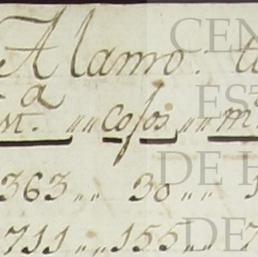 Alamo. t
a
nt. „ cosos „ m
363 „ 30 „
711 „ 155 „ 7
CEN
EST
DE H
DE